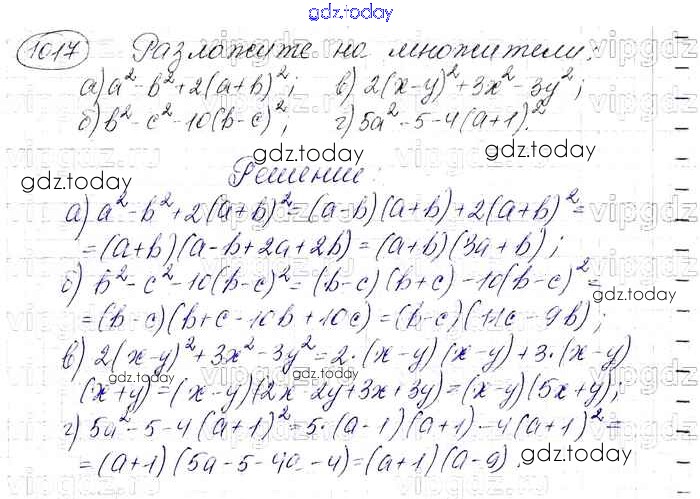 gdz.today
1017 Разложите на множители:
а) a² - b² + 2(a+b)²; в) 2(x-y)² + 3x² - 3y²;
б) b² - c² - 10(b-c)²; г) 5a² - 5 - 4(a+1)².
gdz.today gdz.today
Решение:
gdz.today
а) a² - b² + 2(a+b)² = (a-b)(a+b) + 2(a+b)² =
= (a+b)(a-b+2a+2b) = (a+b)(3a+b);
б) b² - c² - 10(b-c)² = (b-c)(b+c) - 10(b-c)² =
gdz.today
= (b-c)(b+c-10b+10c) = (b-c)(11c-9b);
в) 2(x-y)² + 3x² - 3y² = 2·(x-y)(x-y) + 3·(x-y)
gdz.today
(x+y) = (x-y)(2x-2y+3x+3y) = (x-y)(5x+y);
г) 5a² - 5 - 4(a+1)² = 5·(a-1)(a+1) - 4(a+1)² =
= (a+1)(5a-5-4a-4) = (a+1)(a-9).
gdz.today